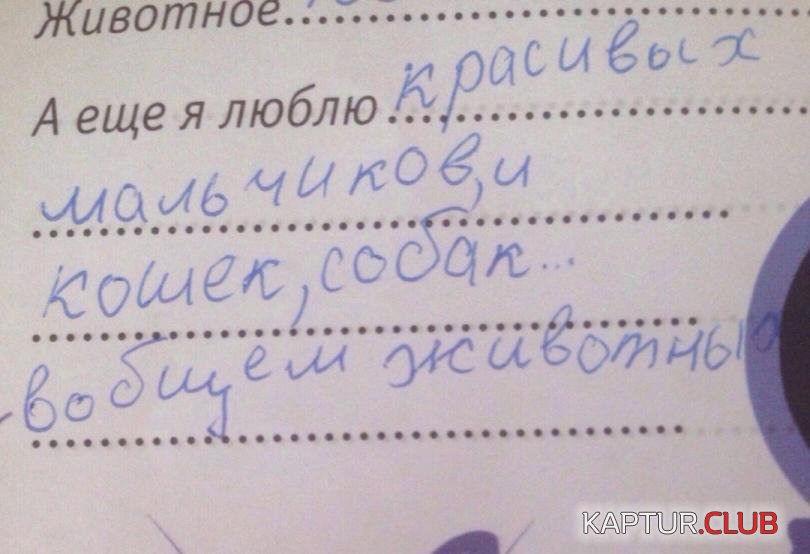 Животное
А еще я люблю красивых
мальчиков, и
кошек, собак...
вобщем животных
KAPTUR.CLUB